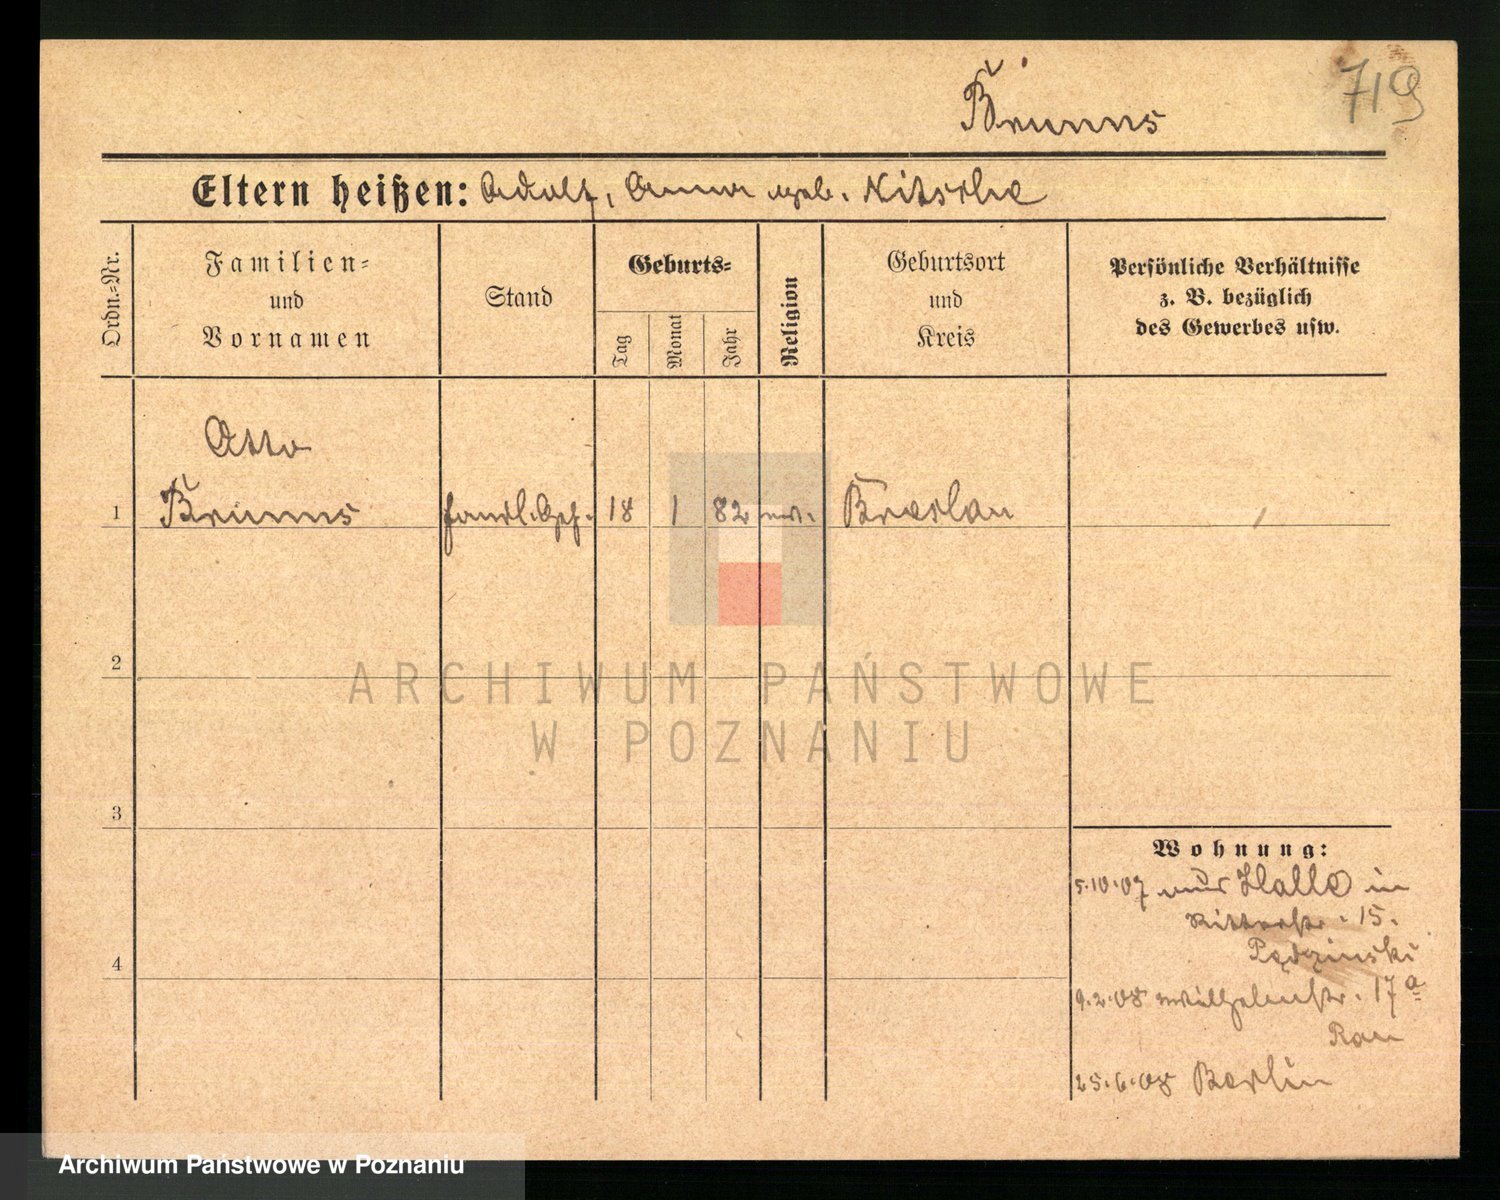 719
Brunns
Eltern heißen: Adolf, Anna geb. Nitsche
Ordn.-Nr.
Familien-
und
Vornamen
Stand
Geburts-
Tag
Monat
Jahr
Religion
Geburtsort
und
Kreis
Persönliche Verhältnisse
z. B. bezüglich
des Gewerbes usw.
Otto
1 Brunns Handl. Geh. 18 1 82 ev. Breslau
2
ARCHIWUM PAŃSTWOWE
W POZNANIU
3
4
Wohnung:
5.10.07 aus Halle in
Ritterstr. 15.
9.2.08 Wilhelmstr. 17a
Rau
25.6.08 Berlin
Archiwum Państwowe w Poznaniu